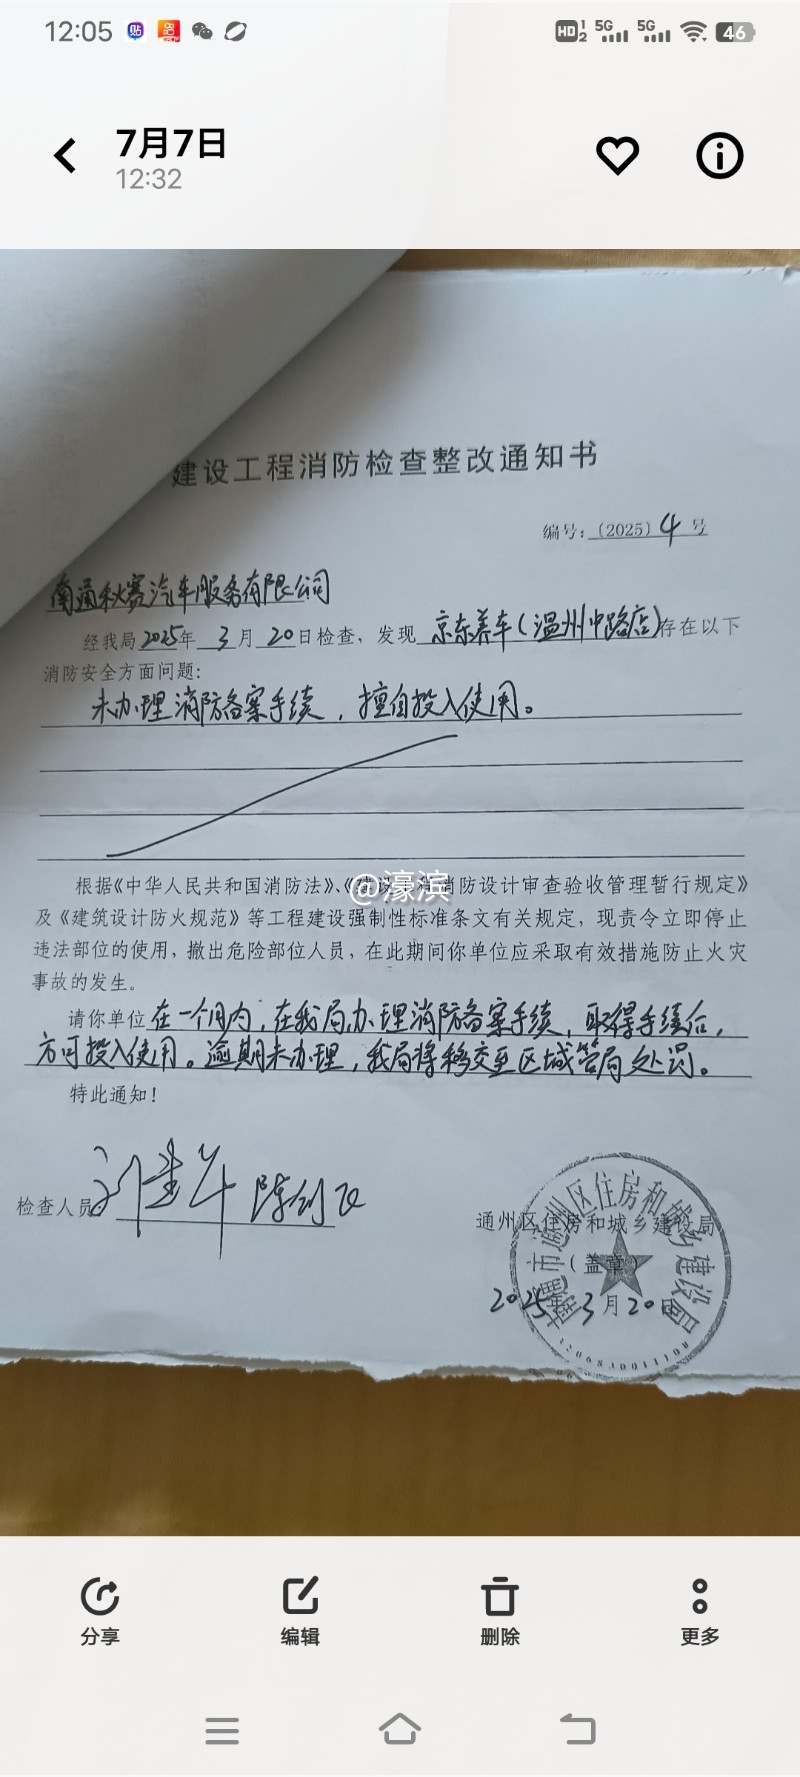 12:05
HD 1 2 5G 5G 46
7月7日
12:32
建设工程消防检查整改通知书
编号:（2025）4号
南通秋赛汽车服务有限公司
经我局2025年3月20日检查，发现 京东养车(温州中路店)存在以下
消防安全方面问题:
未办理消防备案手续，擅自投入使用。
根据《中华人民共和国消防法》、《建设工程消防设计审查验收管理暂行规定》
@濠滨
及《建筑设计防火规范》等工程建设强制性标准条文有关规定，现责令立即停止
违法部位的使用，撤出危险部位人员，在此期间你单位应采取有效措施防止火灾
事故的发生。
请你单位在一个月内，在我局办理消防备案手续，取得手续后，
方可投入使用。逾期未办理，我局将移交至区城管局处罚。
特此通知！
检查人员
通州区住房和城乡建设局
（盖章）
2025年3月20日
南通市通州区住房和城乡建设局
分享
编辑
删除
更多